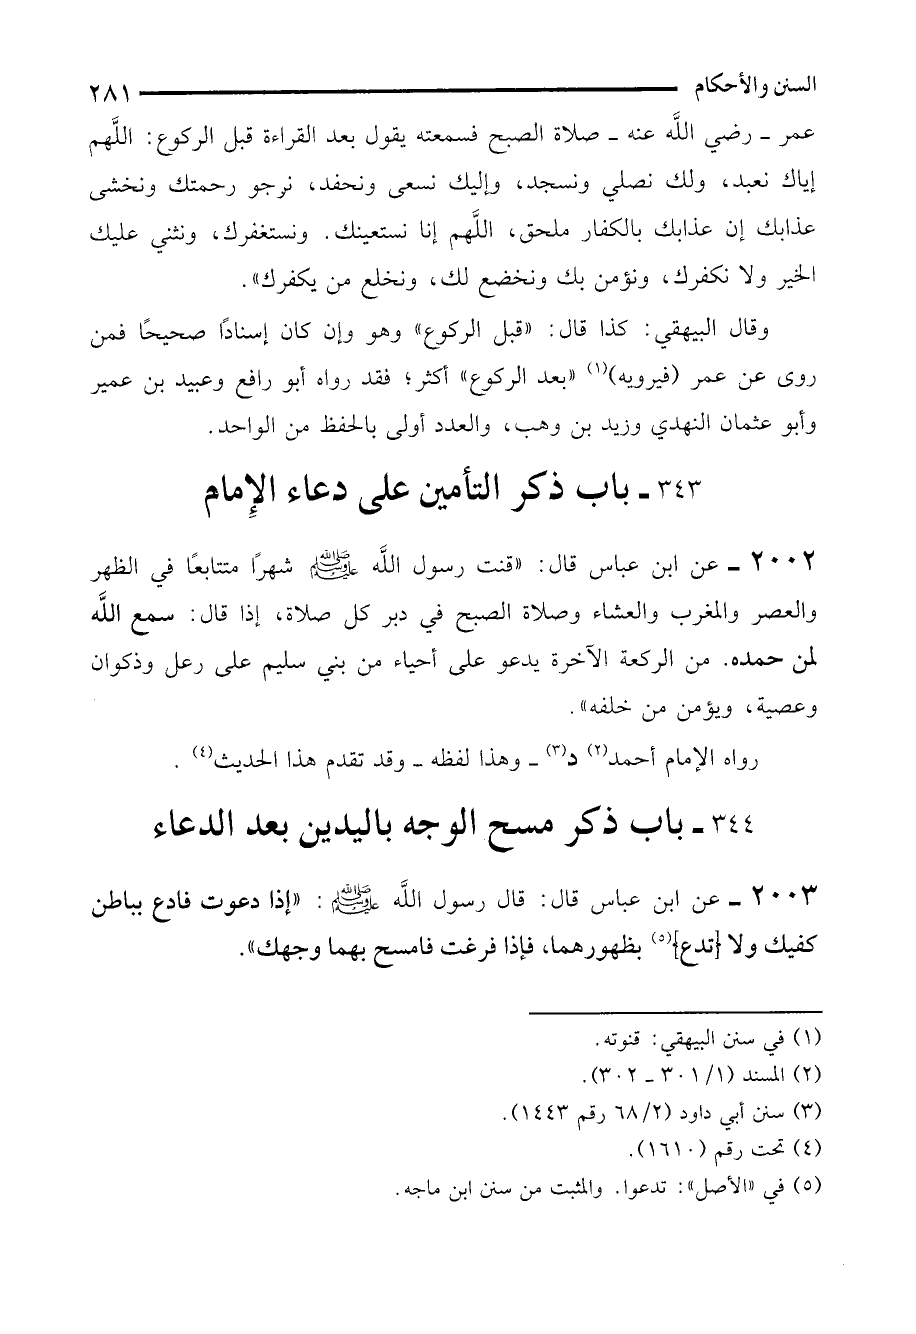 السنن والأحكام ٢٨١
عمر ـ رضي اللَّه عنه ـ صلاة الصبح فسمعته يقول بعد القراءة قبل الركوع: اللَّهم
إياك نعبد، ولك نصلي ونسجد، وإليك نسعى ونحفد، نرجو رحمتك ونخشى
عذابك إن عذابك بالكفار ملحق، اللَّهم إنا نستعينك. ونستغفرك، ونثني عليك
الخير ولا نكفرك، ونؤمن بك ونخضع لك، ونخلع من يكفرك».
وقال البيهقي: كذا قال: «قبل الركوع» وهو وإن كان إسنادًا صحيحًا فمن
روى عن عمر (فيرويه)(١) «بعد الركوع» أكثر؛ فقد رواه أبو رافع وعبيد بن عمير
وأبو عثمان النهدي وزيد بن وهب، والعدد أولى بالحفظ من الواحد.
٣٤٣ ـ باب ذكر التأمين على دعاء الإمام
٢٠٠٢ ـ عن ابن عباس قال: «قنت رسول اللَّه ﷺ شهرًا متتابعًا في الظهر
والعصر والمغرب والعشاء وصلاة الصبح في دبر كل صلاة، إذا قال: سمع اللَّه
لمن حمده. من الركعة الآخرة يدعو على أحياء من بني سليم على رعل وذكوان
وعصية، ويؤمن من خلفه».
رواه الإمام أحمد(٢) د(٣) ـ وهذا لفظه ـ وقد تقدم هذا الحديث(٤) .
٣٤٤ ـ باب ذكر مسح الوجه باليدين بعد الدعاء
٢٠٠٣ ـ عن ابن عباس قال: قال رسول اللَّه ﷺ : «إذا دعوت فادع بباطن
كفيك ولا {تدع}(٥) بظهورهما، فإذا فرغت فامسح بهما وجهك».
(١) في سنن البيهقي: قنوته.
(٢) المسند (١/ ٣٠١ ـ ٣٠٢).
(٣) سنن أبي داود (٢/ ٦٨ رقم ١٤٤٣).
(٤) تحت رقم (١٦١٠).
(٥) في «الأصل»: تدعوا. والمثبت من سنن ابن ماجه.